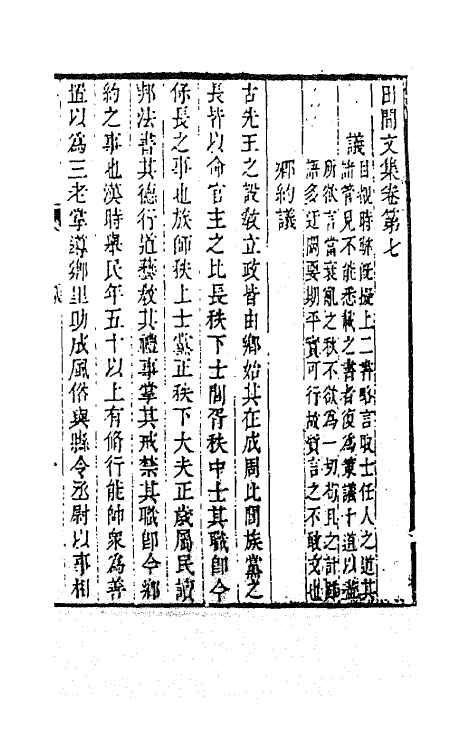 田間文集卷第七
議
目擊時艱旣擬上二書略言取士任人之道其
諸管見不能悉載之書者復為槀議十道以盡
所欲言當衰亂之秋不欲為一切苟且之計雖
語多迂闊要期平實可行故質言之不敢文也
鄉約議
古先王之設敎立政皆由鄉始其在成周比閭族黨之
長皆以命官主之比長秩下士閭胥秩中士其職卽今
保長之事也族師秩上士黨正秩下大夫正歲屬民讀
邦法書其德行道藝敎其禮事掌其戒禁其職卽今鄉
約之事也漢時舉民年五十以上有脩行能帥衆為善
置以為三老掌導鄉里助成風俗與縣令丞尉以事相